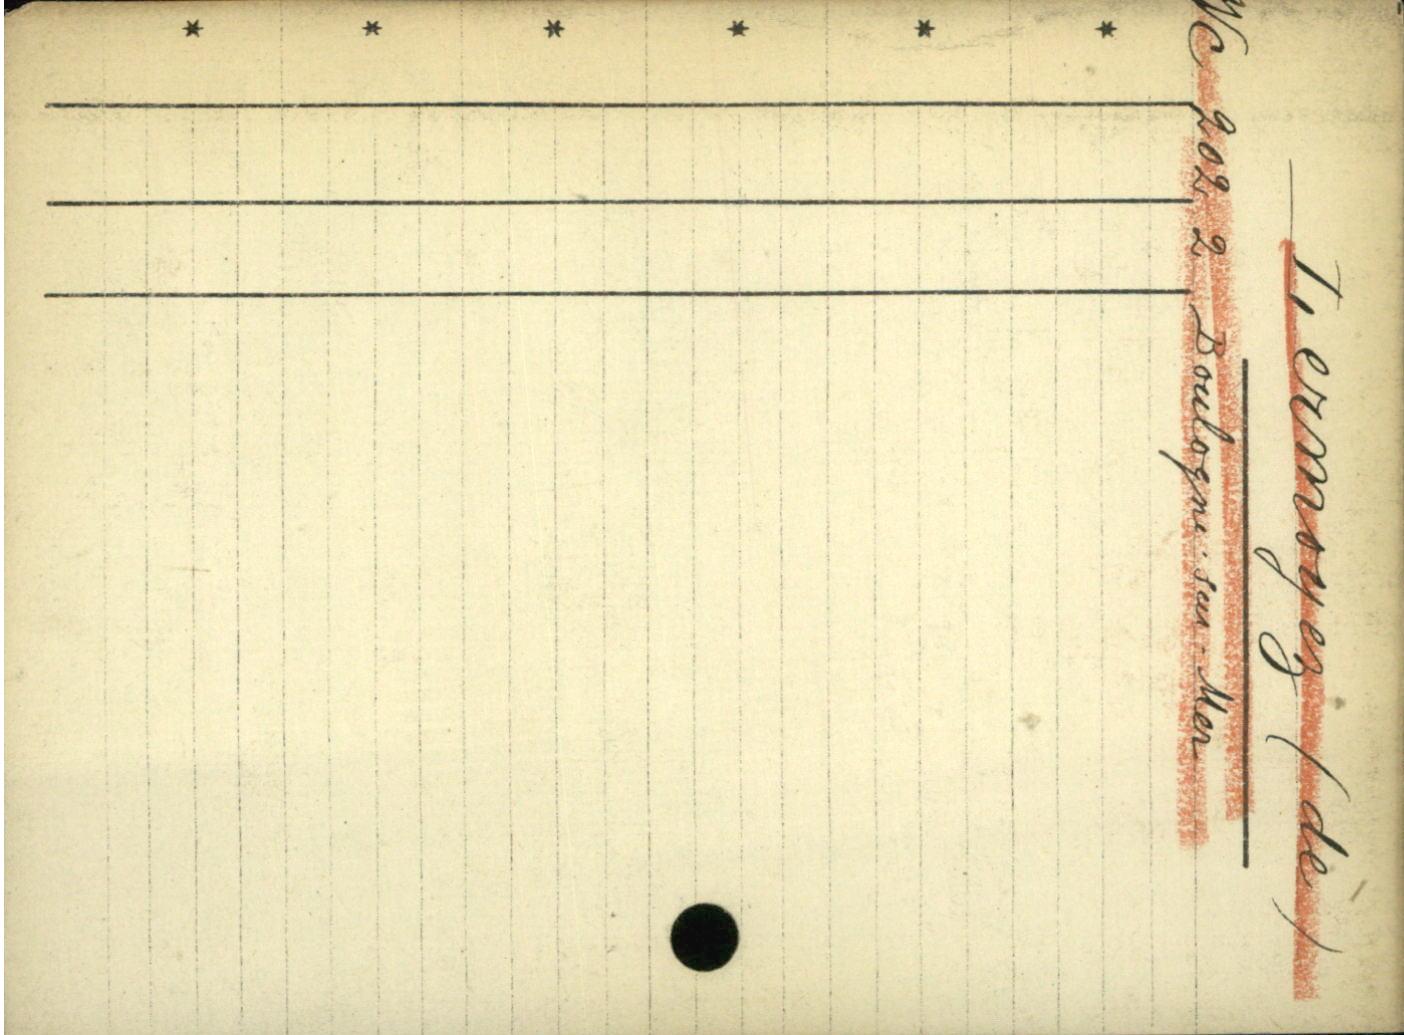 Lermoyez (de)
NC 202 2 Boulogne-sur-Mer